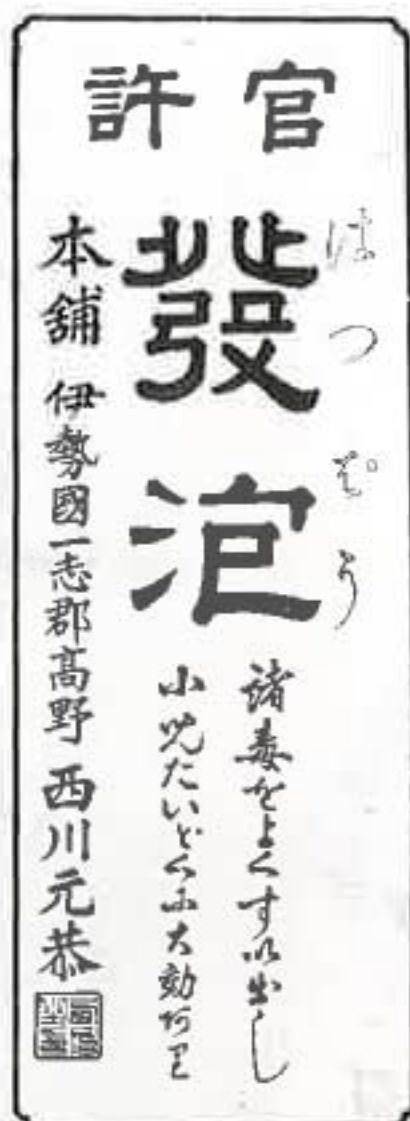 官許
はつぱう
發泡
諸毒をよくすい出し
小児たいどくに大効あり
本舗 伊勢國一志郡高野 西川元恭